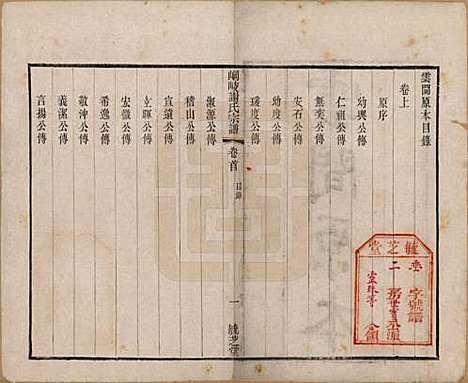 雲閣原本目錄
卷上
原序
幼輿公傳
仁祖公傳
無奕公傳
安石公傳
幼度公傳
瑗度公傳
峒岐謝氏宗譜
卷首
目錄
一
淑源公傳
稽山公傳
宣遠公傳
立暉公傳
宏微公傳
希逸公傳
敬沖公傳
義潔公傳
言揚公傳
芝堂
二房